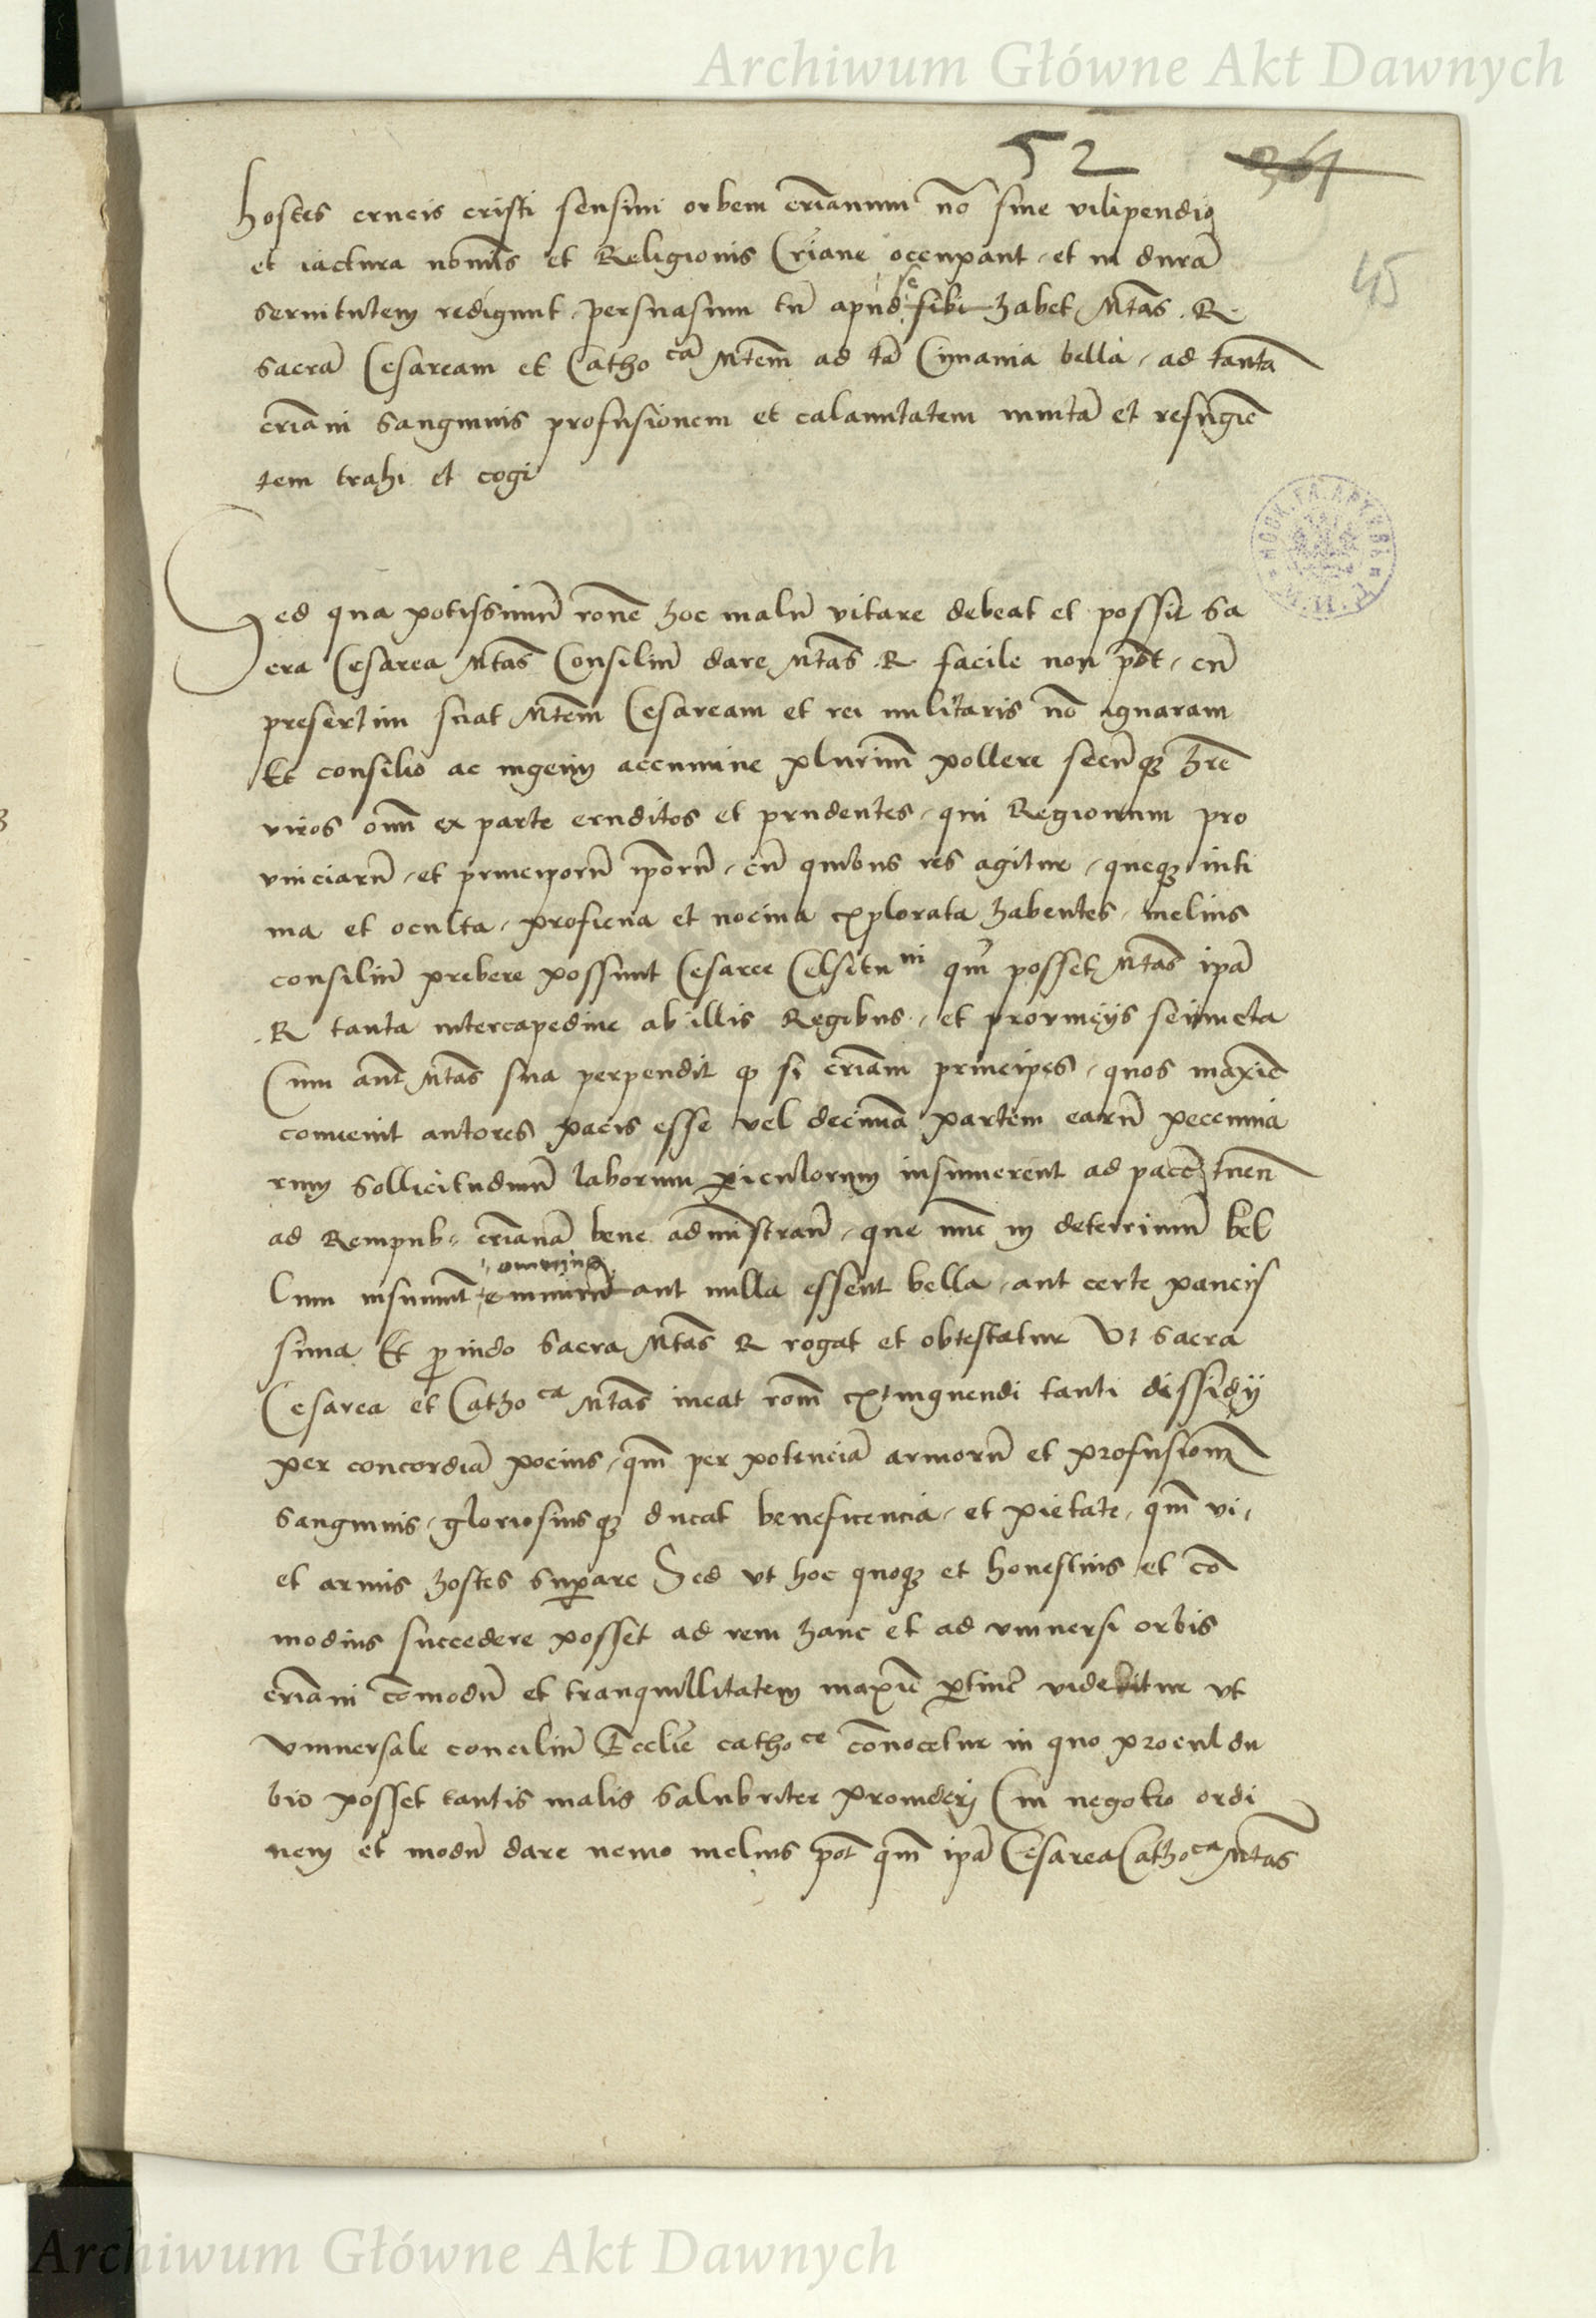 Archiwum Główne Akt Dawnych
52 361
45
hostes crucis cristi sensim orbem crianum no sine vilipendio
et iactura nominis et Religionis Criane occupant et in dura
servitutem redigunt persuasum tn apud se sibi habet Mtas R
sacra Cesaream et Catho ca Mtem ad ta immania bella ad tanta
criani sanguinis profusionem et calamitatem invita et refugie
tem trahi et cogi
Sed qua potissimu rone hoc malu vitare debeat et possit Sa
cra Cesarea Mtas Consiliu dare Mtas R facile non pot cu
presertim sciat Mtem Cesaream et rei militaris no ignaram
Et consilio ac ingenij accumine plurimu pollere secuq hre
viros omni ex parte eruditos et prudentes qui Regionum pro
vinciaru et principoru iporu cu quibus res agitur queq inti
ma et oculta proficua et nociva explorata habentes melius
consiliu prebere possunt Cesaree Celsitu ni qm posset Mtas ipa
R tanta intercapedine ab illis Regibus et provincijs seiuncta
Cum aut Mtas sua perpendit q si criani principes quos maxie
convenit autores pacis esse vel decima partem earu peccunia
rum sollicitudinu laborum periculorum insumerent ad pace tuen
ad Rempub criana bene administran que nunc in deterrimu bel
lum insumut omnino aut nulla essent bella aut certe paucis
sima Et proindo Sacra Mtas R rogat et obtestatur Ut Sacra
Cesarea et Catho ca Mtas ineat rom extinguendi tanti dissidij
per concordia pocius qm per potencia armoru et profusiom
sanguinis gloriosiusq ducat beneficencia et pietate qm vi
et armis hostes superare Sed ut hoc quoq et honestius et co
modius succedere posset ad rem hanc et ad universi orbis
criani comodu et tranquillitatem maxie pertinere videbitur ut
universale conciliu Ecclie catho ce convocetur in quo procul du
bio posset tantis malis salubriter provideri Cui negotio ordi
nem et modu dare nemo melius pot qm ipa Cesarea Catho ca Mtas
Archiwum Główne Akt Dawnych